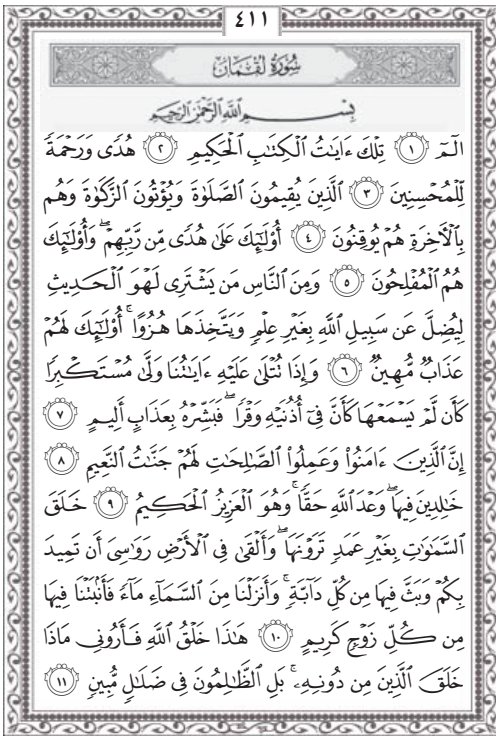 ٤١١
سُورَةُ لُقْمَانَ
بِسْمِ ٱللَّهِ ٱلرَّحْمَٰنِ ٱلرَّحِيمِ
الٓمٓ ١ تِلْكَ ءَايَٰتُ ٱلْكِتَٰبِ ٱلْحَكِيمِ ٢ هُدًى وَرَحْمَةً
لِّلْمُحْسِنِينَ ٣ ٱلَّذِينَ يُقِيمُونَ ٱلصَّلَوٰةَ وَيُؤْتُونَ ٱلزَّكَوٰةَ وَهُم
بِٱلْأَخِرَةِ هُمْ يُوقِنُونَ ٤ أُوْلَٰٓئِكَ عَلَىٰ هُدًى مِّن رَّبِّهِمْ ۖ وَأُوْلَٰٓئِكَ
هُمُ ٱلْمُفْلِحُونَ ٥ وَمِنَ ٱلنَّاسِ مَن يَشْتَرِى لَهْوَ ٱلْحَدِيثِ
لِيُضِلَّ عَن سَبِيلِ ٱللَّهِ بِغَيْرِ عِلْمٍ وَيَتَّخِذَهَا هُزُوًا ۚ أُوْلَٰٓئِكَ لَهُمْ
عَذَابٌ مُّهِينٌ ٦ وَإِذَا تُتْلَىٰ عَلَيْهِ ءَايَٰتُنَا وَلَّىٰ مُسْتَكْبِرًا
كَأَن لَّمْ يَسْمَعْهَا كَأَنَّ فِىٓ أُذُنَيْهِ وَقْرًا ۖ فَبَشِّرْهُ بِعَذَابٍ أَلِيمٍ ٧
إِنَّ ٱلَّذِينَ ءَامَنُواْ وَعَمِلُواْ ٱلصَّٰلِحَٰتِ لَهُمْ جَنَّٰتُ ٱلنَّعِيمِ ٨
خَٰلِدِينَ فِيهَا ۖ وَعْدَ ٱللَّهِ حَقًّا ۚ وَهُوَ ٱلْعَزِيزُ ٱلْحَكِيمُ ٩ خَلَقَ
ٱلسَّمَٰوَٰتِ بِغَيْرِ عَمَدٍ تَرَوْنَهَا ۖ وَأَلْقَىٰ فِى ٱلْأَرْضِ رَوَٰسِىَ أَن تَمِيدَ
بِكُمْ وَبَثَّ فِيهَا مِن كُلِّ دَآبَّةٍ ۚ وَأَنزَلْنَا مِنَ ٱلسَّمَآءِ مَآءً فَأَنۢبَتْنَا فِيهَا
مِن كُلِّ زَوْجٍ كَرِيمٍ ١٠ هَٰذَا خَلْقُ ٱللَّهِ فَأَرُونِى مَاذَا
خَلَقَ ٱلَّذِينَ مِن دُونِهِۦ ۚ بَلِ ٱلظَّٰلِمُونَ فِى ضَلَٰلٍ مُّبِينٍ ١١